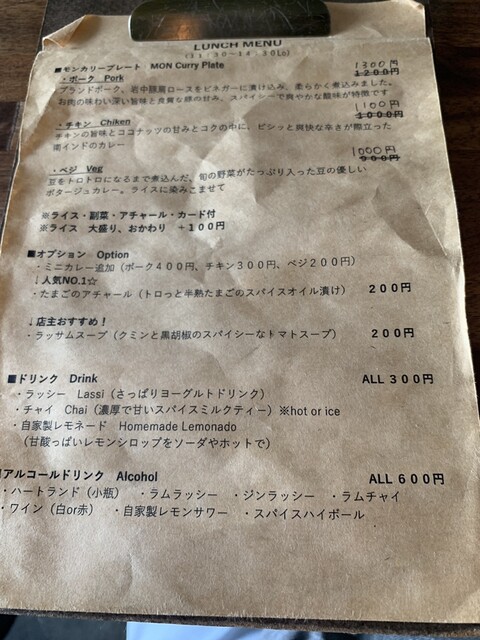 LUNCH MENU
(11:30~14:30Lo)
■モンカリープレート MON Curry Plate
1300円
・ポーク Pork 1200円
ブランドポーク、岩中豚肩ロースをビネガーに漬け込み、柔らかく煮込みました。
お肉の味わい深い旨味と良質な豚の甘み、スパイシーで爽やかな酸味が特徴です
1100円
・チキン Chiken 1000円
チキンの旨味とココナッツの甘みとコクの中に、ビシッと爽快な辛さが際立った
南インドのカレー
1000円
・ベジ Veg 900円
豆をトロトロになるまで煮込んだ、旬の野菜がたっぷり入った豆の優しい
ポタージュカレー。ライスに染みこませて
※ライス・副菜・アチャール・カード付
※ライス 大盛り、おかわり +100円
■オプション Option
・ミニカレー追加（ポーク400円、チキン300円、ベジ200円）
↓人気NO.1☆
・たまごのアチャール（トロっと半熟たまごのスパイスオイル漬け） 200円
↓店主おすすめ！
・ラッサムスープ（クミンと黒胡椒のスパイシーなトマトスープ） 200円
■ドリンク Drink ALL 300円
・ラッシー Lassi（さっぱりヨーグルトドリンク）
・チャイ Chai（濃厚で甘いスパイスミルクティー）※hot or ice
・自家製レモネード Homemade Lemonado
（甘酸っぱいレモンシロップをソーダやホットで）
■アルコールドリンク Alcohol ALL 600円
・ハートランド（小瓶） ・ラムラッシー ・ジンラッシー ・ラムチャイ
・ワイン（白or赤） ・自家製レモンサワー ・スパイスハイボール